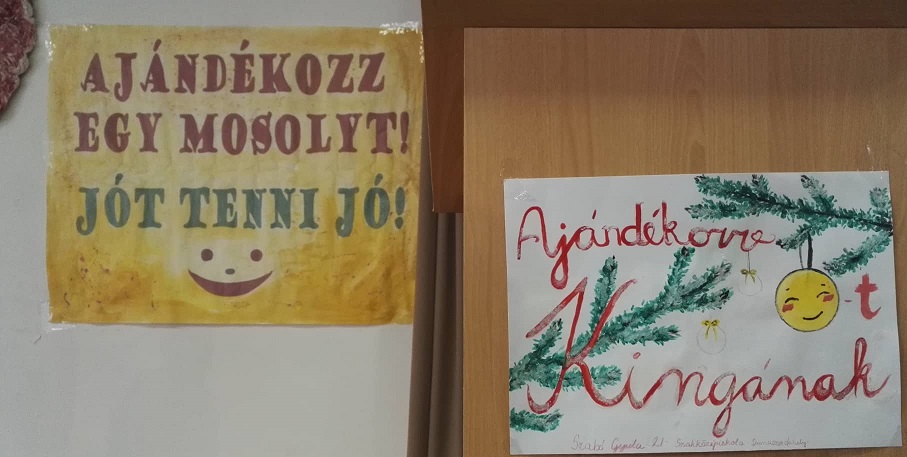 AJÁNDÉKOZZ
EGY MOSOLYT!
JÓT TENNI JÓ!
Ajándékozz
-t
Kingának
Szabó Gyula 21. Szakközépiskola